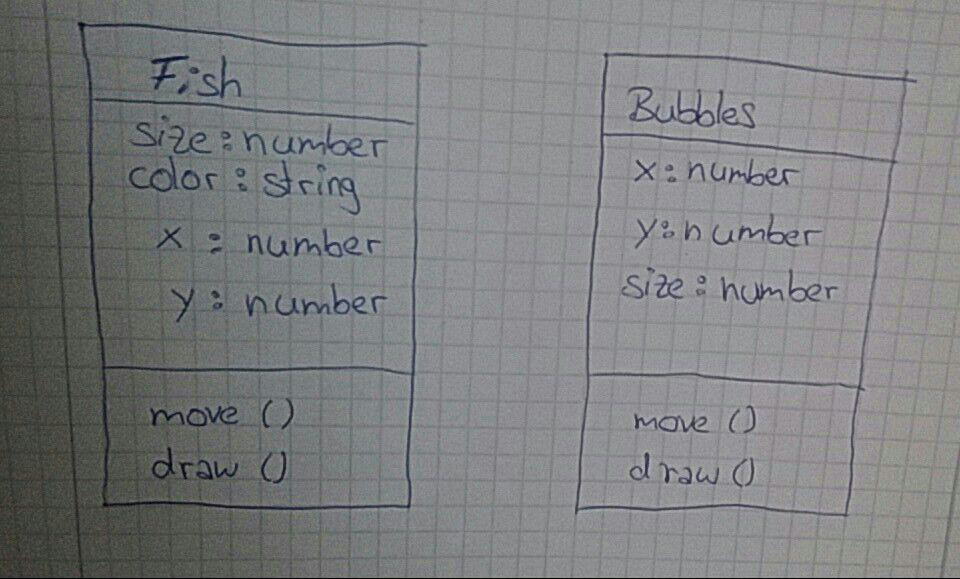 Fish
size: number
color: string
x: number
y: number
move ()
draw ()
Bubbles
x: number
y: number
size: number
move ()
draw ()